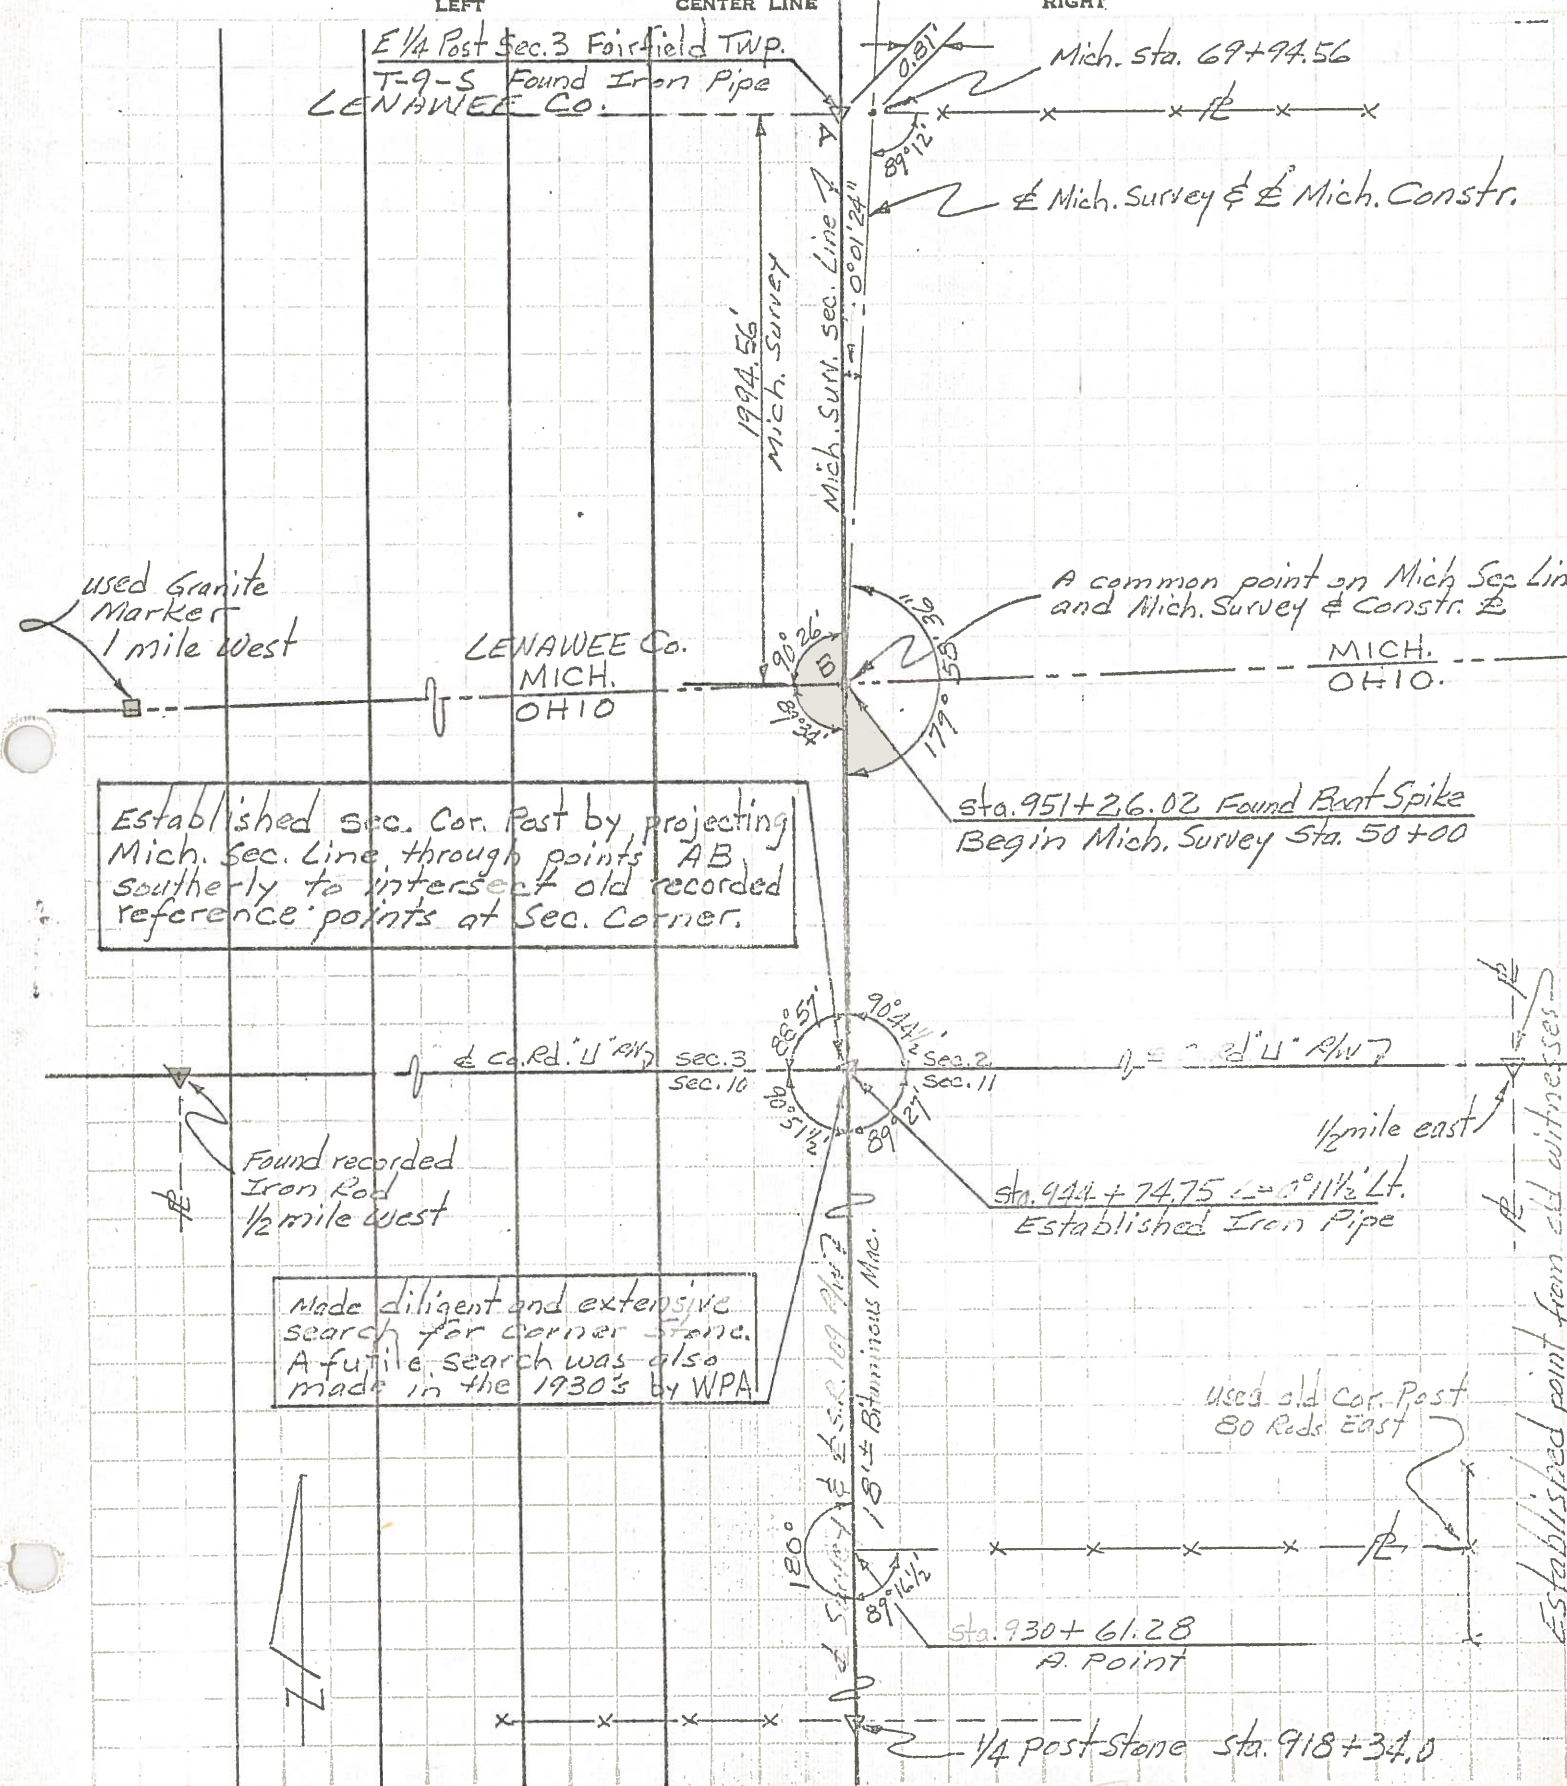 LEFT CENTER LINE RIGHT
E 1/4 Post Sec. 3 Fairfield Twp.
T-9-S Found Iron Pipe
LENAWEE Co.
0.81'
Mich. Sta. 69+94.56
℄
89°12'
A
℄ Mich. Survey & ℄ Mich. Constr.
1994.56'
Mich. Survey
Mich. Surv. Sec. Line
0°01'24"
used Granite
Marker
1 mile West
LENAWEE Co.
MICH.
OHIO
90°26'
B
89°34'
179°58'36"
A common point on Mich Sec Lin
and Mich. Survey & Constr. ℄
MICH.
OHIO.
Sta. 951+26.02 Found Bent Spike
Begin Mich. Survey Sta. 50+00
Established Sec. Cor. Post by projecting
Mich. Sec. Line through points AB
southerly to intersect old recorded
reference points at Sec. Corner.
88°57'
90°44½'
℄ Co. Rd. "U" R/W
Sec. 3
Sec. 10
Sec. 2
Sec. 11
Rd "U" R/W
90°51½'
89°27'
½ mile east
Found recorded
Iron Rod
½ mile West
℄
Sta. 944+74.75 ∠=0°11½' Lt.
Established Iron Pipe
Established point from old witnesses
Made diligent and extensive
search for Corner Stone.
A futile search was also
made in the 1930's by WPA
℄ Survey & ℄ S.R. 109 R/W
18'± Bituminous Mac.
used old Cor. Post
80 Rods East
180°
89°16½'
℄
Sta. 930+61.28
A. Point
N
1/4 post Stone Sta. 918+34.0